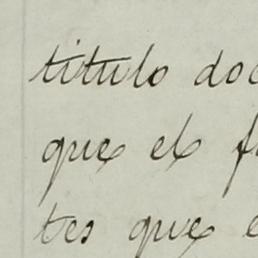 titulo doc
que el f
tes que e